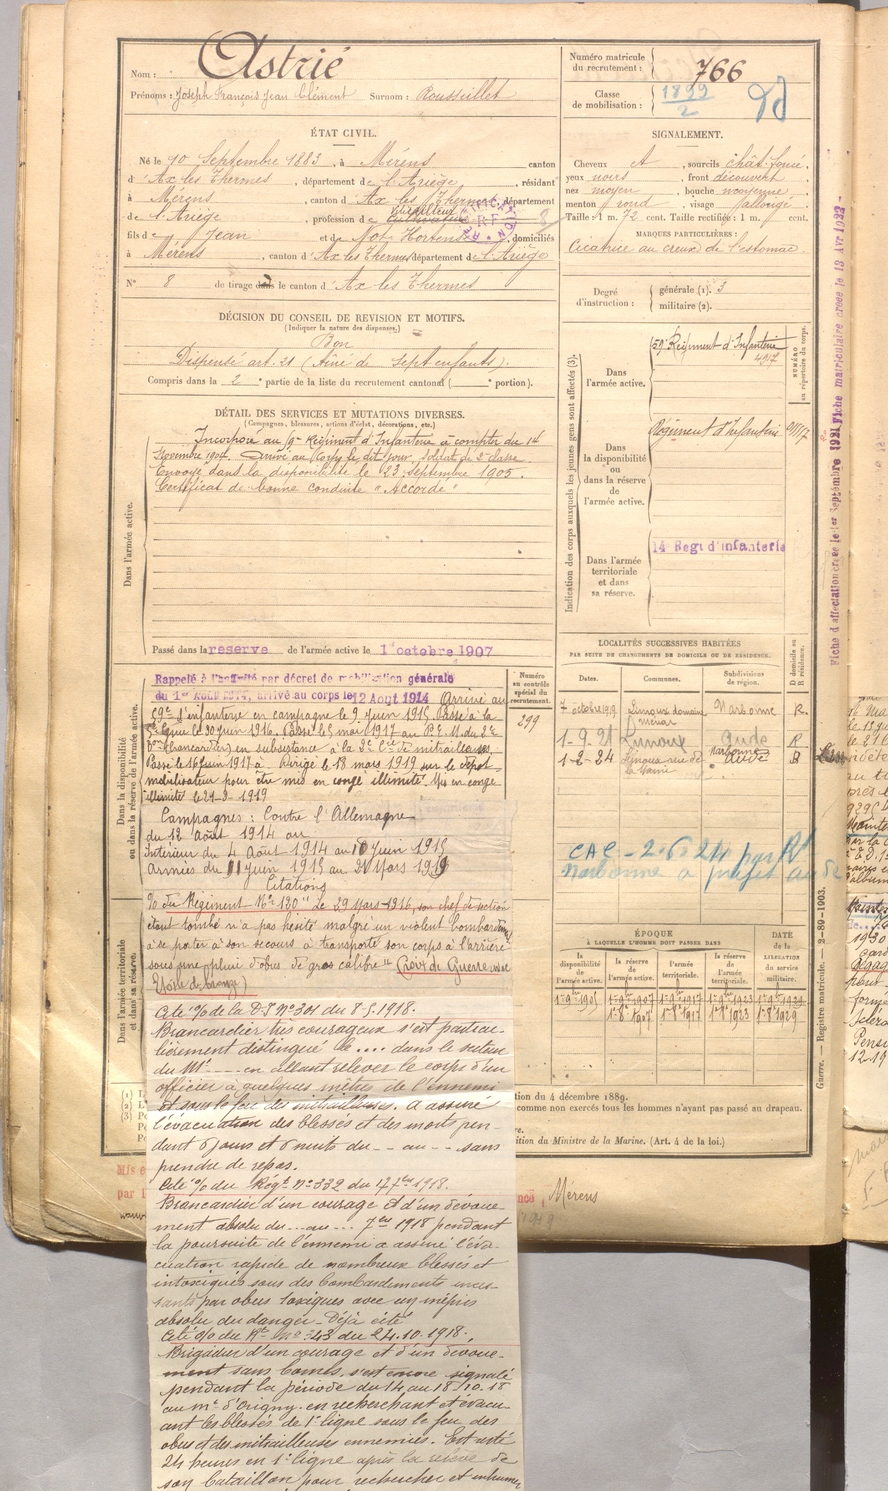 Nom : Astrié
Prénoms : Joseph François Jean Clément Surnom : Rousseillet
Numéro matricule du recrutement : 766
Classe de mobilisation : 1899/2
ÉTAT CIVIL.
Né le 10 Septembre 1883, à Mérens canton
d'Ax les Thermes, département de l'Ariège, résidant
à Mérens, canton d'Ax les Thermes, département
de l'Ariège, profession de
fils de Jean et de Not Hortense, domiciliés
à Mérens, canton d'Ax les Thermes, département de l'Ariège
N° 8 de tirage dans le canton d'Ax les Thermes
SIGNALEMENT.
Cheveux et, sourcils chât. foncé
yeux noirs, front découvert
nez moyen, bouche moyenne
menton rond, visage allongé
Taille : 1 m. 72 cent. Taille rectifiée : 1 m. cent.
MARQUES PARTICULIÈRES :
Cicatrice au creux de l'estomac
Degré d'instruction : générale (1). 3
militaire (2).
DÉCISION DU CONSEIL DE REVISION ET MOTIFS.
(Indiquer la nature des dispenses.)
Bon
Dispensé art. 21 (Aîné de sept enfants).
Compris dans la 2e partie de la liste du recrutement cantonal ( portion).
DÉTAIL DES SERVICES ET MUTATIONS DIVERSES.
(Campagnes, blessures, actions d'éclat, décorations, etc.)
Dans l'armée active.
Incorporé au 9e Régiment d'Infanterie à compter du 14
Novembre 1904. Arrivé au Corps le dit jour, soldat de 2e classe
Envoyé dans la disponibilité le 23 septembre 1905.
Certificat de bonne conduite "Accordé"
Passé dans la reserve de l'armée active le 1 octobre 1907
Indication des corps auxquels les jeunes gens sont affectés (3).
NUMÉRO au répertoire du corps.
Dans l'armée active.
59e Régiment d'Infanterie
Dans la disponibilité ou dans la réserve de l'armée active.
Régiment d'Infanterie
Dans l'armée territoriale et dans sa réserve.
14 Regt d'infanterie
Fiche d'affectation créée le 1er Septembre 1921 Fiche matriculaire créée le 13 Avr 1922
LOCALITÉS SUCCESSIVES HABITÉES
PAR SUITE DE CHANGEMENTS DE DOMICILE OU DE RÉSIDENCE.
Dates. Communes. Subdivisions de région. D domicile ou R résidence.
7 octobre 1919 Limoux domaine Narbonne R.
1-9-21 Limoux Aude R
1-2-24 Limoux rue de la Mairie Narbonne Aude R
Dans la disponibilité ou dans la réserve de l'armée active.
Numéro au contrôle spécial du recrutement.
299
Rappelé à l'activité par décret de mobilisation générale
du 1er AOUT 1914, arrivé au corps le 12 Aout 1914 Arrivé au
59e d'infanterie en campagne le 9 juin 1915 Passé à la
5e Cgnie le 30 juin 1916. Passé le 5 mai 1917 au P.E.M. du 2e
Bon (brancardier) en subsistance à la 2e Cie de mitrailleuses,
Passé le 16 juin 1917 à Dirigé le 18 mars 1919 sur le dépôt
mobilisateur pour être mis en congé illimité Mis en congé
illimité le 21-3-1919
Campagnes : Contre l'Allemagne
du 12 Août 1914 au
Intérieur du 4 Août 1914 au 10 Juin 1915
Armées du 11 juin 1915 au 21 Mars 1919
Citations
Dans l'armée territoriale et dans sa réserve.
% du Régiment N° 130 "Le 29 Mars 1916, son chef de section
étant tombé n'a pas hésité malgré un violent bombardement
à se porter à son secours à transporté son corps à l'arrière
sous une pluie d'obus de gros calibre" (Croix de Guerre avec
Etoile de bronze)
Cité % de la D.I n° 301 du 8.5.1918.
Brancardier très courageux s'est particu-
lièrement distingué le .... dans le secteur
du Mt .... en allant relever le corps d'un
officier à quelques mètres de l'ennemi
et sous le feu des mitrailleuses. A assuré
l'évacuation des blessés et des morts pen-
dant 6 jours et 6 nuits du -- au -- sans
prendre de repos.
Cité % du Régt n° 332 du 17 7bre 1918.
Brancardier d'un courage et d'un dévoue-
ment absolu du ... au ... 7bre 1918 pendant
la poursuite de l'ennemi a assuré l'éva-
cuation rapide de nombreux blessés et
intoxiqués sous des bombardements inces-
sants par obus toxiques avec un mépris
absolu du danger - Déjà cité
Cité % du Rt n° 343 du 24.10.1918.
Brigadier d'un courage et d'un dévoue-
ment sans bornes, s'est encore signalé
pendant la période du 14 au 18/10.18
au mt d'Origny en recherchant et évacu-
ant les blessés de 1e ligne sous le feu des
obus et des mitrailleuses ennemies. Est resté
24 heures en 1e ligne après la relève de
son bataillon pour rechercher et inhumer
CAC - 2.6.24 par
Narbonne à préfet Aude
ÉPOQUE
À LAQUELLE L'HOMME DOIT PASSER DANS
DATE de la LIBÉRATION du service militaire.
la disponibilité de l'armée active. la réserve de l'armée active. l'armée territoriale. la réserve de l'armée territoriale.
1-9bre 1905 1-9bre 1907 1-9bre 1917 1-9bre 1923 1-9bre 1929
1-8bre 1907 1-8bre 1917 1-8bre 1923 1-8bre 1929
Guerre. — Registre matricule. — 2-89-1903.
tion du 4 décembre 1889.
comme non exercés tous les hommes n'ayant pas passé au drapeau.
ition du Ministre de la Marine. (Art. 4 de la loi.)
Mérens